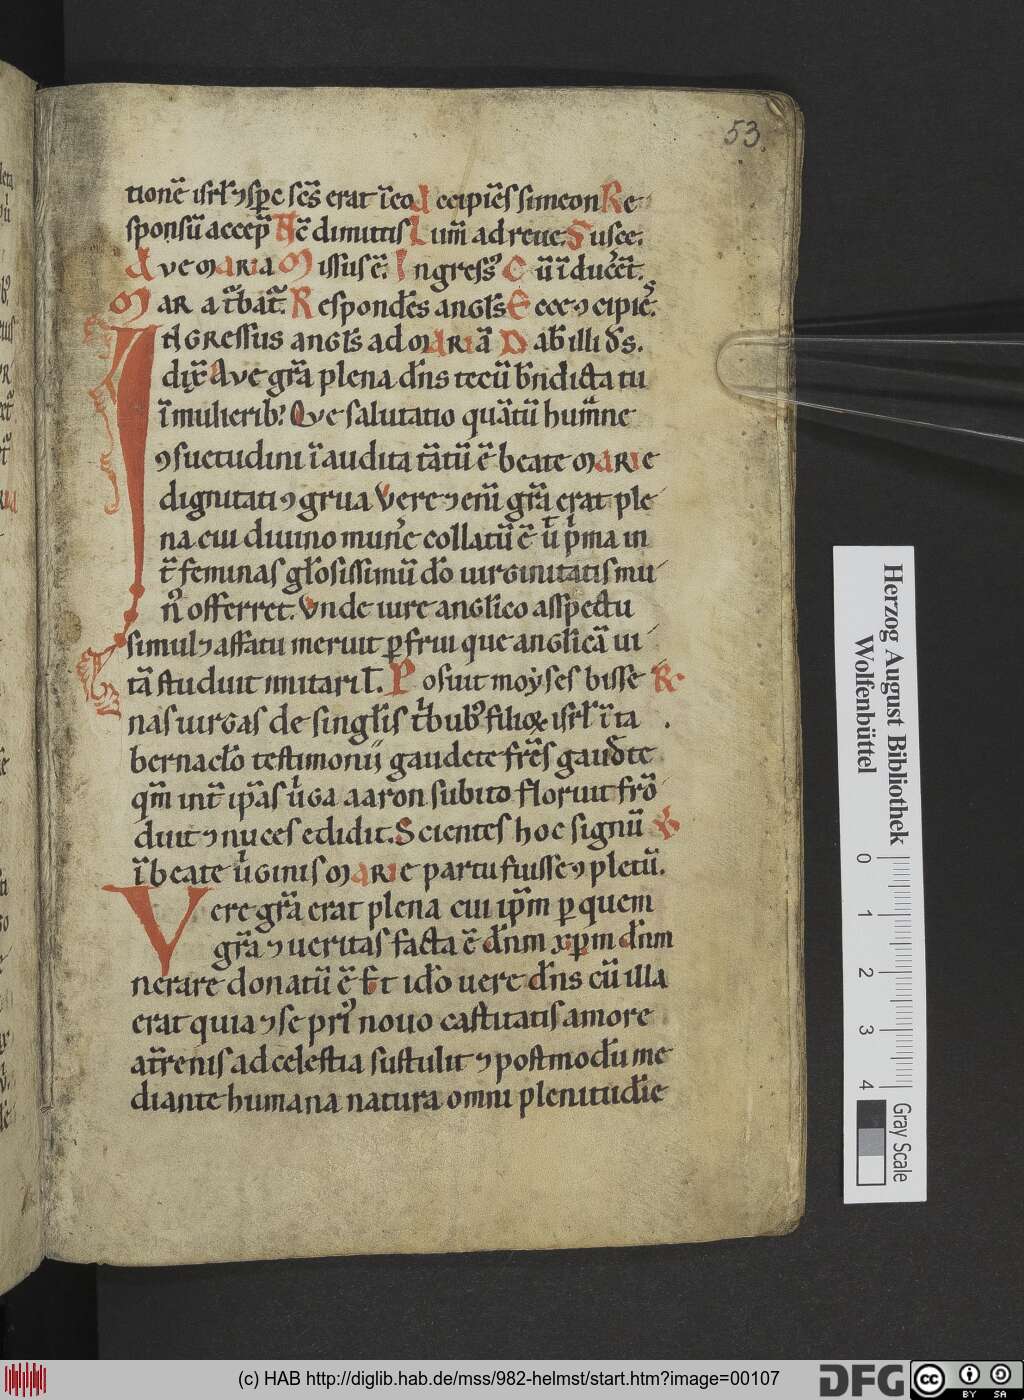 53.
tionē isrl̄ ⁊ sp̄c sc̄s erat ī eo. Accipiēs simeon Re
sponsū accep̄ Nc̄ dimittis Lum̄ ad reue. Susce.
Ave maria Missus ē. Ingress᷒ Cū īducēt.
Maria t̄bat. Respondēs angl̄s Ecce ⁊cipiē.
Ingressus angl̄s ad mariā Dab illi dn̄s.
dix̄ Ave gr̄a plena dn̄s tecū bn̄dicta tu
ī mulierib᷒ Que salutatio quātū humāne
⁊suetudini īaudita tātū ē beate marie
dignitati ⁊grua Vere ⁊ enī gr̄a erat ple
na cui diuino mun̄e collatū ē ut p̄ma int̄
t̄ feminas gl̄osissimū do uirginitatis mu
n᷒ offerret. Vnde iure anglico asspectu
simul ⁊ affatu meruit p̱frui que anglicā ui
tā studuit imitari l̄. Posuit moẏses bisse
nas uirgas de singl̄is t̄bub᷒ filioꝝ isrl̄ ī ta
bernacl̄o testimonii gaudete fr̄es gaudete
qm̄ int̄ ip̄as uirga aaron subito floruit fro
duit ⁊ nuces edidit. Scientes hoc signū
ī beate uirginis marie partu fuisse ⁊pletū.
Vere gr̄a erat plena cui ip̄m p̱ quem
gr̄a ⁊ ueritas facta ē dn̄m xp̄m dn̄m
nerare donatū ē Et ido uere dn̄s cū illa
erat quia ⁊ se pri᷒ nouo castitatis amore
at̄renis ad celestia sustulit ⁊ postmodū me
diante humana natura omni plenitudīe
Herzog August Bibliothek
Wolfenbüttel
0 1 2 3 4
Gray Scale
(c) HAB http://diglib.hab.de/mss/982-helmst/start.htm?image=00107
DFG
cc BY SA